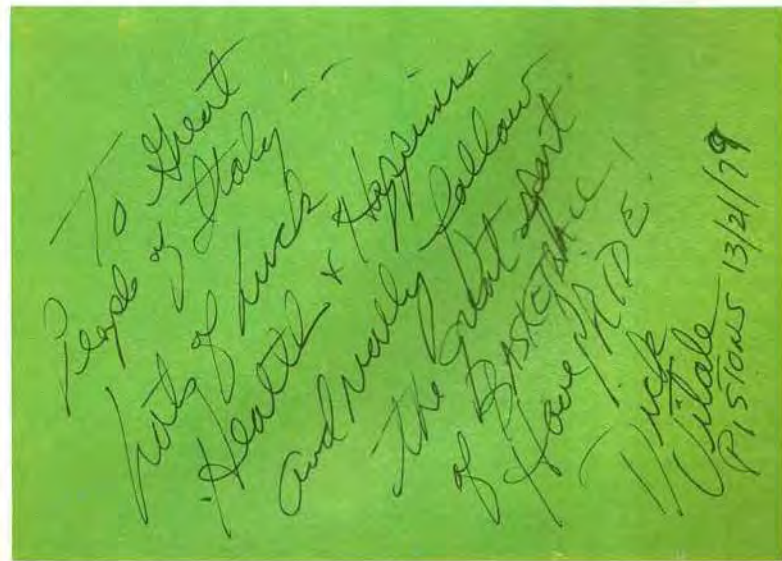 To Great
People of Italy --
Lots of Luck
Health & Happiness
and really follow
the great sport
of BASKETBALL!
Have PRIDE!
Dick
Vitale
PISTONS 13/21/79